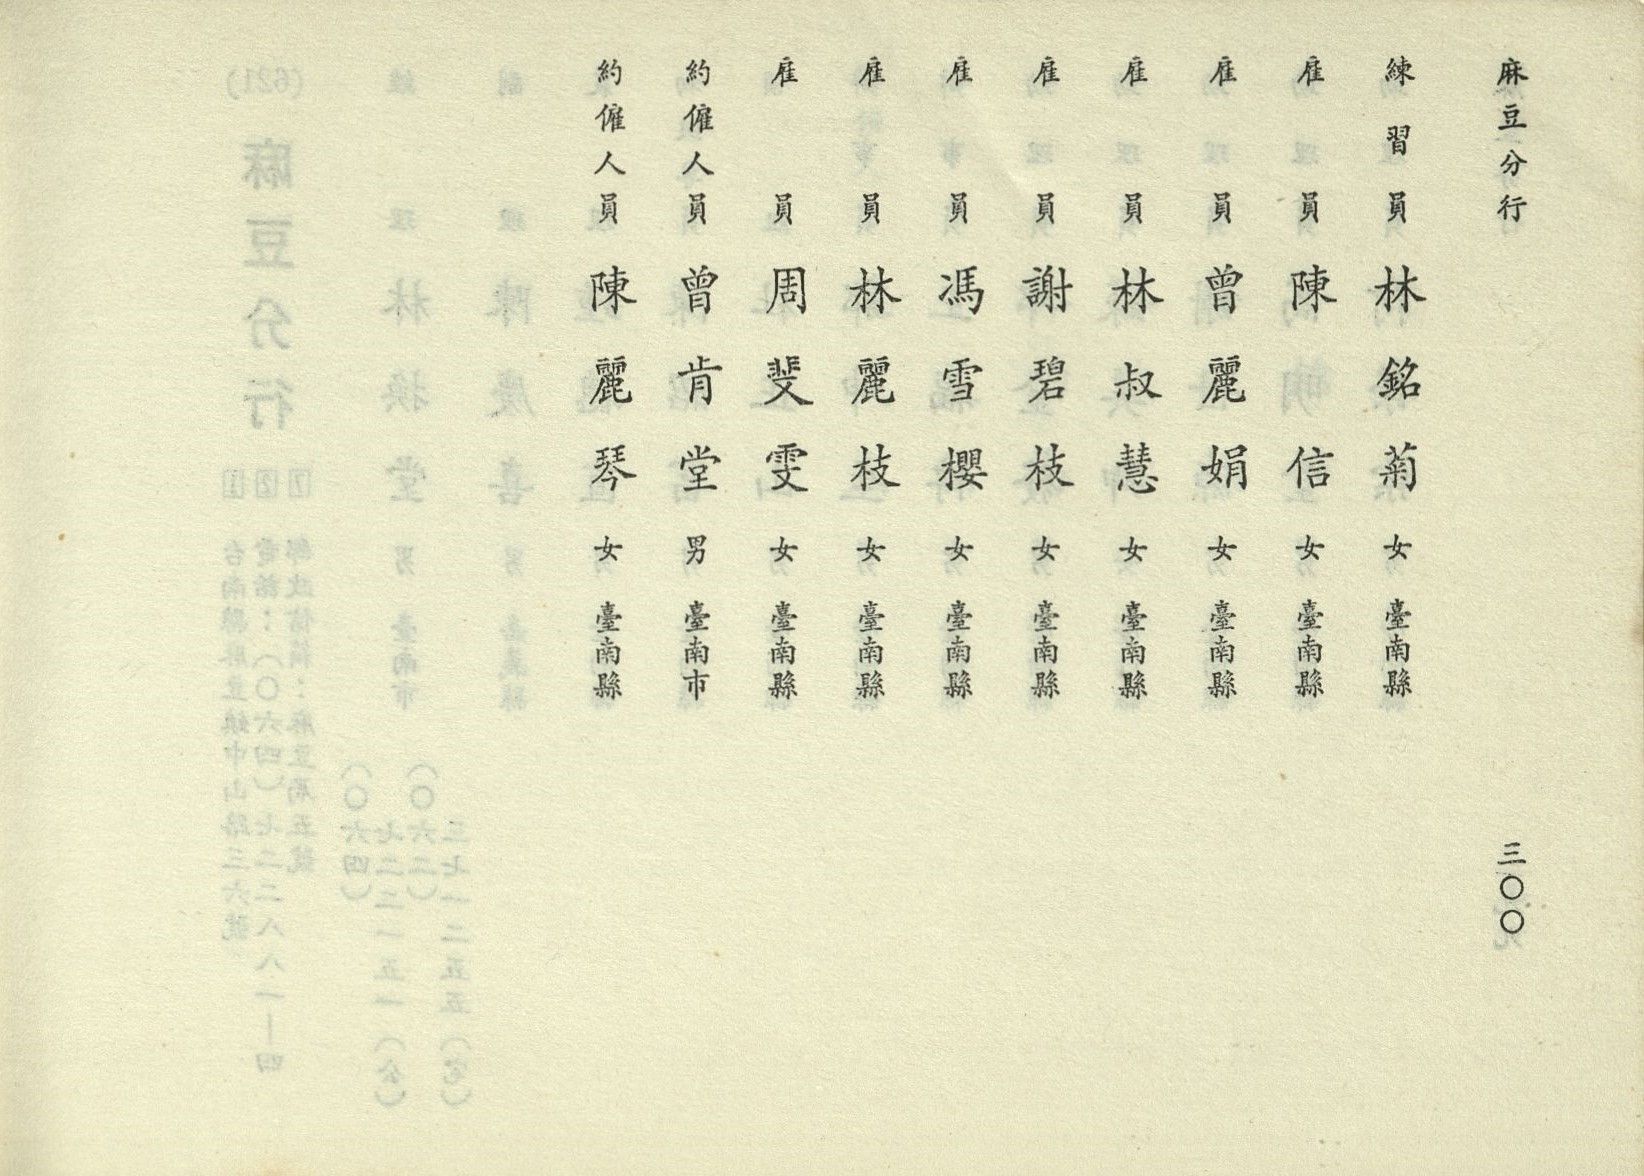 麻豆分行 三〇〇
練習員 林銘菊 女 臺南縣
雇員 陳信 女 臺南縣
雇員 曾麗娟 女 臺南縣
雇員 林叔慧 女 臺南縣
雇員 謝碧枝 女 臺南縣
雇員 馮雪櫻 女 臺南縣
雇員 林麗枝 女 臺南縣
雇員 周斐雯 女 臺南縣
約僱人員 曾肯堂 男 臺南市
約僱人員 陳麗琴 女 臺南縣